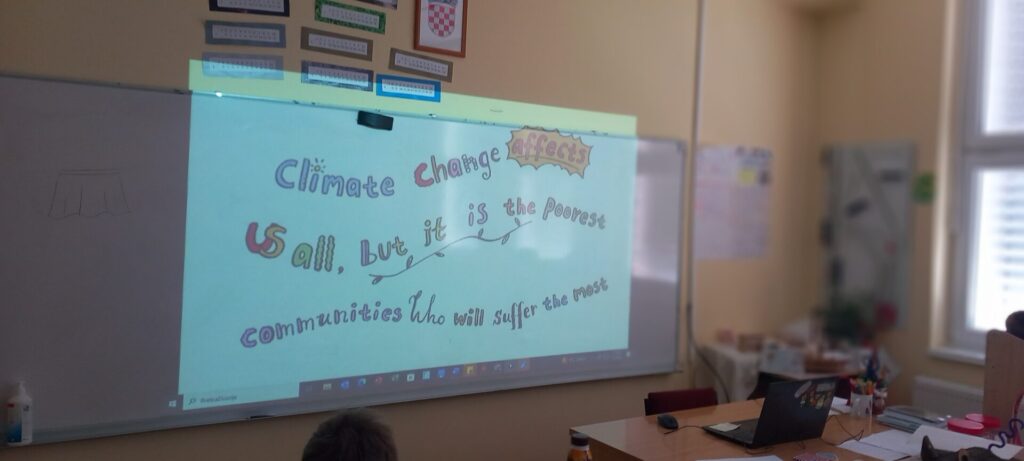 Climate change affects
us all, but it is the poorest
communities Who will suffer the most